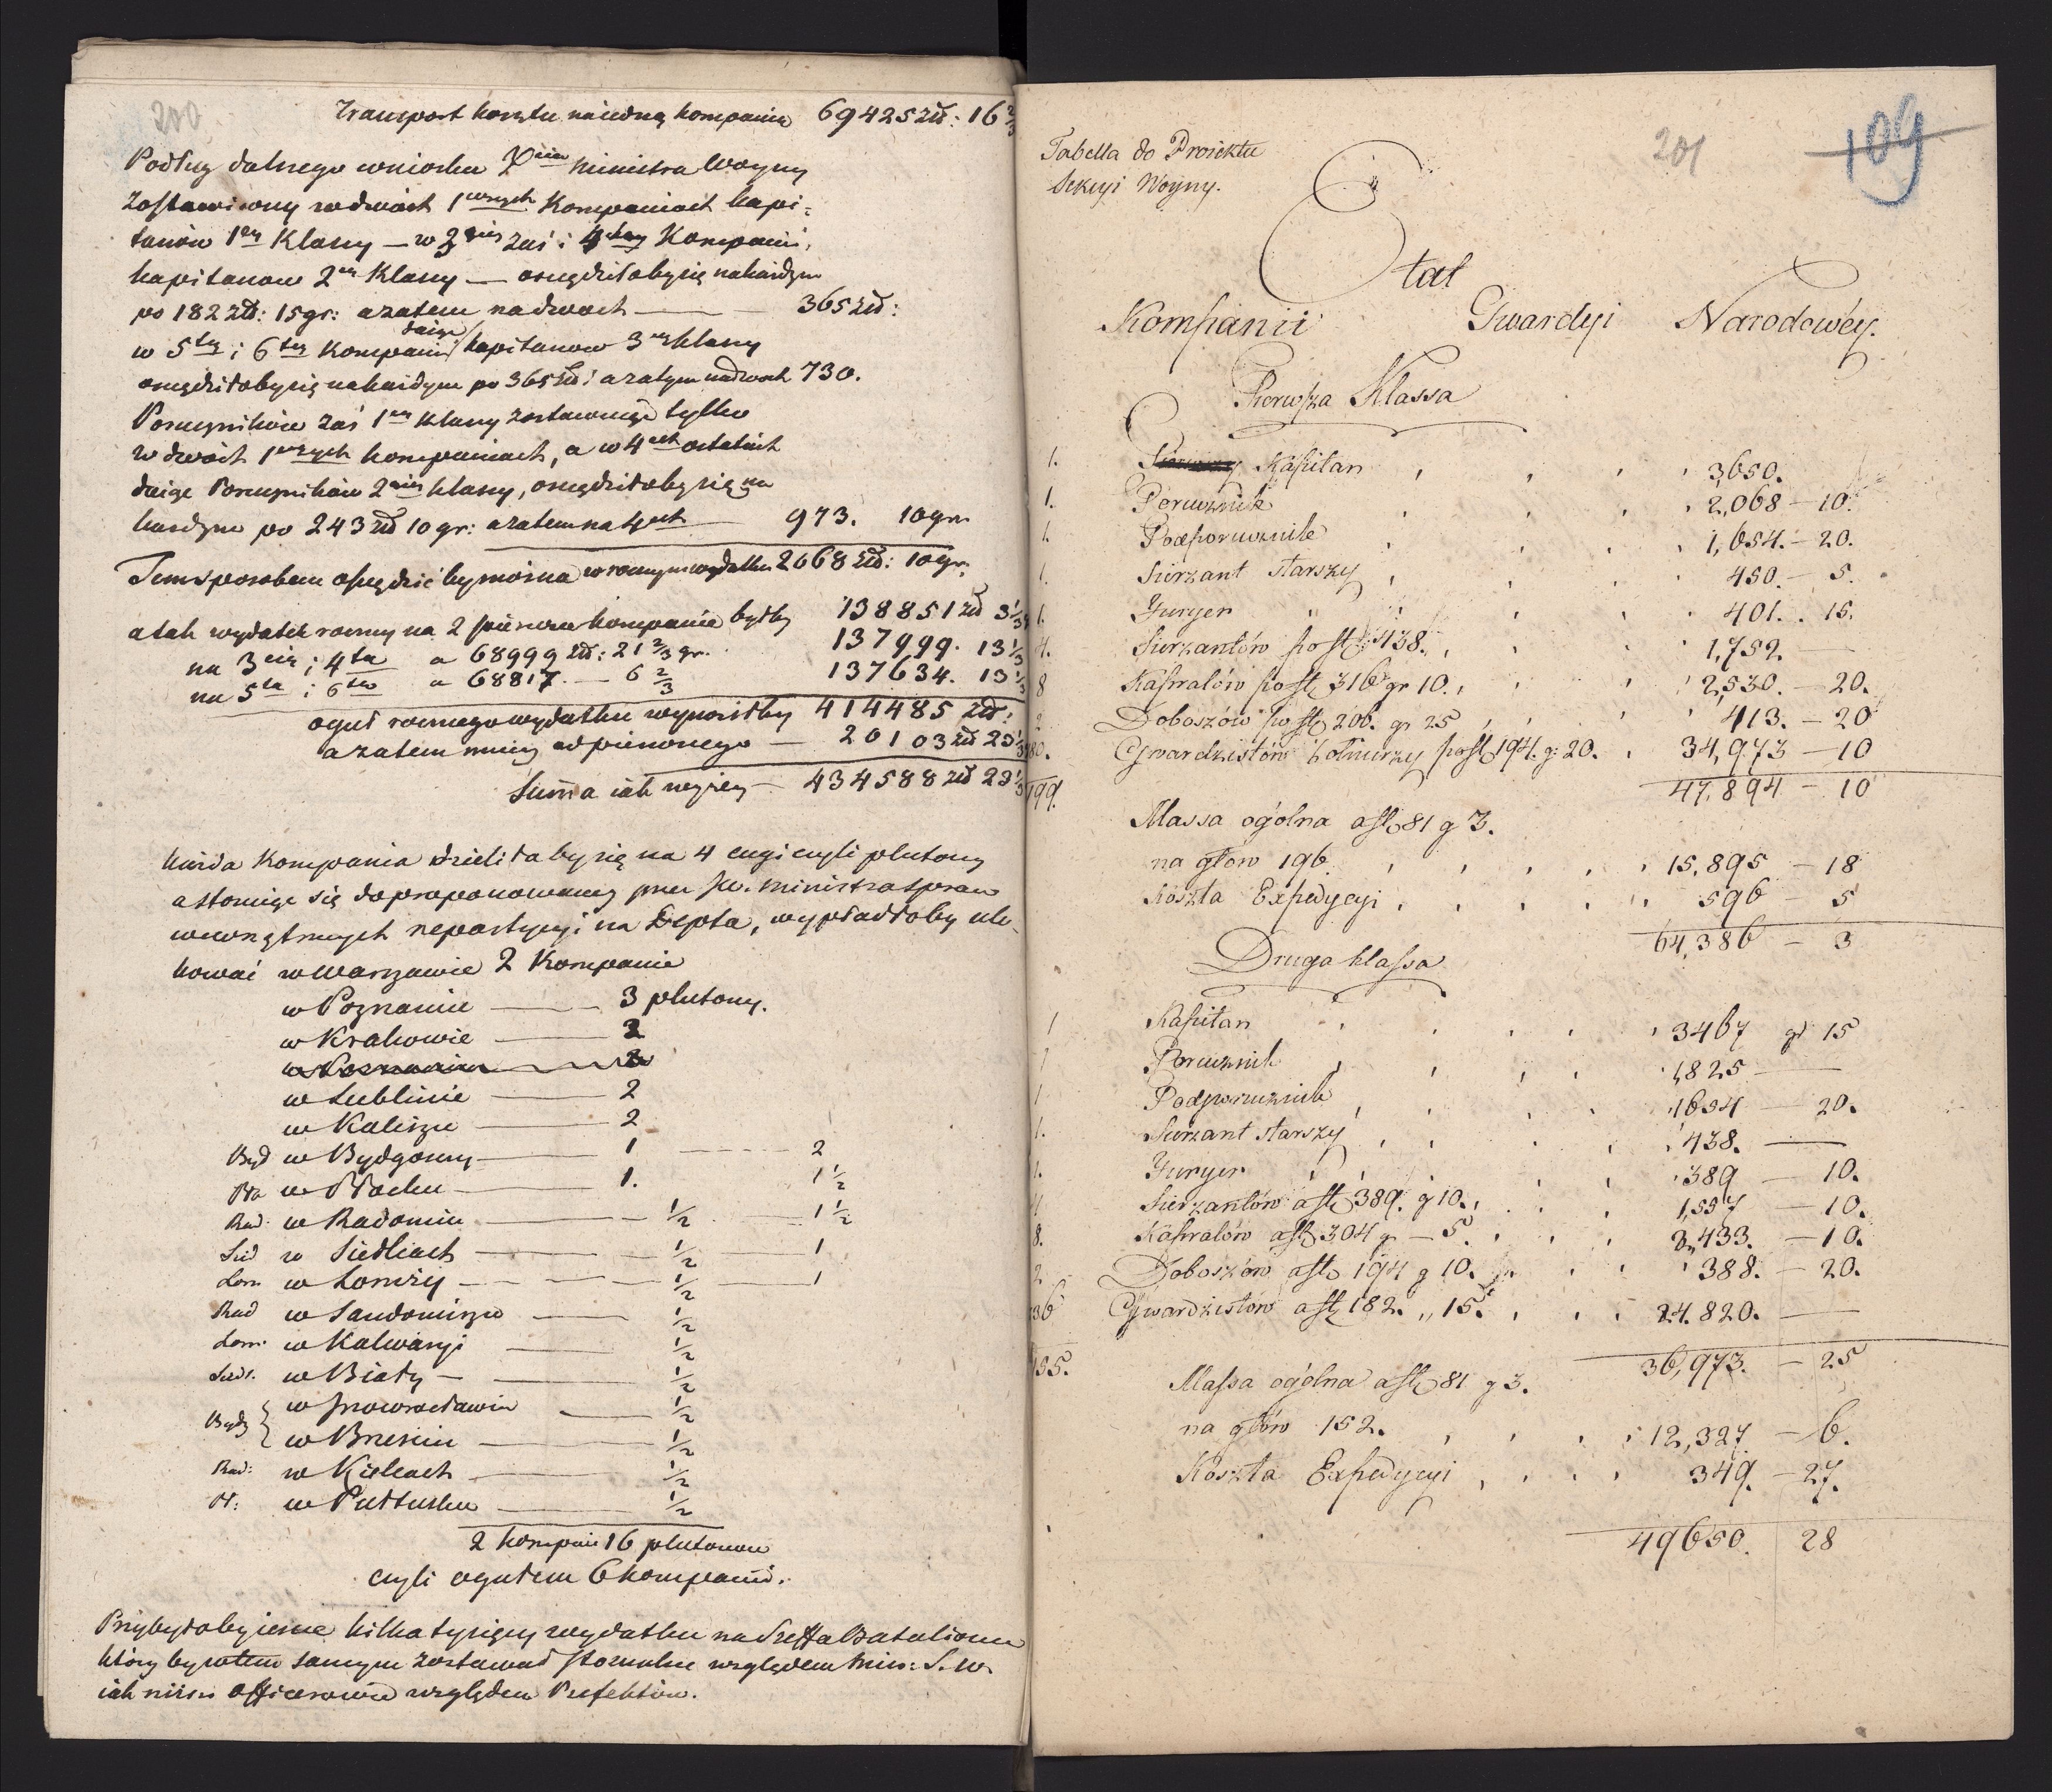 200
Transport kosztu na iedną kompanię 69425 zł: 16 2/3
Podług dalszego wniosku Xcia Ministra Woyny
zostawiwszy w dwóch 1wszych Kompaniach kapi=
tanów 1ey Klassy — w 3ciey zaś i 4tey Kompanii,
kapitanow 2ey Klassy — oszczędziłoby się na każdym
po 182 zł: 15 gr: a zatem na dwóch — 365 zł:
w 5tey i 6tey Kompanii daiąc kapitanow 3ey klassy
oszczędziłoby się na każdym po 365 zł: a zatym na dwóch 730.
Poruczników zaś 1ey klassy zostawuiąc tylko
w dwóch 1wszych kompaniach, a w 4ech ostatnich
daiąc Poruczników 2giey klassy, oszczędziłoby się na
każdym po 243 zł 10 gr: a zatem na 4ech — 973. 10 gr.
Tem sposobem oszczędzić by można w rocznym wydatku 2068 zł: 10 gr.
a tak wydatek roczny na 2 pierwsze kompanie byłby 138851 zł 3 1/3
na 3cią i 4tą a 68999 zł: 21 2/3 gr. 137999. 13 1/3
na 5tą i 6tą a 68817. — 6 2/3 137634. 13 1/3
oguł rocznego wydatku wynosiłby 414485 zł:
a zatem mniey od pierwszego — 20103 zł 23 1/3
Summa iak wyżey — 434588 zł 23 1/3
Każda Kompania dzieliłaby się na 4 cugi czyli plutony
a stosuiąc się do proponowaney przez JW. Ministra spraw
wewnętrznych repartycyi na Depta, wypadłoby ulo-
kować w Warszawie 2 Kompanie
w Poznaniu — 3 plutony.
w Krakowie — 3
w Poznaniu — 2
w Lublinie — 2
w Kaliszu — 2
Byd w Bydgoszczy — 1 — 2
Pło w Płocku — 1. 1 1/2
Rad: w Radomiu — 1/2 — 1 1/2
Sied w Siedlcach — 1/2 1
Łom. w Łomży — 1/2 — 1
Rad w Sandomirzu — 1/2
Łom: w Kalwaryi — 1/2
Siedl. w Biały — 1/2
Bydg { w Inowrocławiu — 1/2
w Brześciu — 1/2
Rad: w Kielcach — 1/2
Pł: w Pułtusku — 1/2
2 kompanii 16 plutonow
czyli ogułem 6 kompanii.
Przybyłoby ieszcze kilka tysięcy wydatku na Szeffa Batalionu
który by w tem samym zostawał stosunku względem Min: S. W.
iak niżsi officerowie względem Prefektów.
Tabella do Proiektu
Sekcyi Woyny.
201
109
Etat
Kompanii Gwardyi Narodowéy.
Pierwsza Klassa
1. Kapitan 3,650.
1. Porucznik 2,068 — 10.
1. Podporucznik 1,654. — 20.
1. Sierzant starszy 450. — 5.
1. Furyer 401. 15.
4. Sierzantów po fl 438. 1,752 —
8 Kapralów po fl 316 gr 10. 2,530. — 20.
2 Doboszów po fl 206. gr 25 413. — 20
180. Gwardzistów Żołnierzy po fl 194. g. 20. 34,973 — 10
199. 47,894 — 10
Massa ogólna a fl 81 g 3.
na głow 196 15,895 — 18
Koszta Expedycyi 596 — 5
64,386 — 3
Druga klassa
1 Kapitan 3467 gr 15
1 Porucznik 1,825 —
1 Podporucznik 1654 — 20.
1. Sierzant starszy 438. —
1. Furyer 389 — 10.
4 Sierzantów a fl 389. g 10. 1,557 — 10.
8. Kapralów a fl 304 g — 5. 2,433. — 10.
2 Doboszów a fl 194 g 10. 388. — 20.
136 Gwardzistów a fl 182. „ 15. 24.820. —
155. 36,973. — 25
Massa ogólna a fl 81 g 3.
na głów 152. 12,327 — 6.
Koszta Expedycyi 349. — 27.
49650. 28